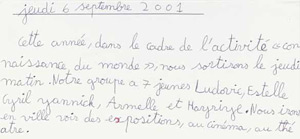 jeudi 6 septembre 2001
Cette année, dans le cadre de l'activité « con
naissance du monde », nous sortirons le jeudi
matin. Notre groupe a 7 jeunes Ludovic, Estelle
Cyril yannick, Armelle et Nous irons
en ville voir des expositions, au cinéma, au thé
atre.